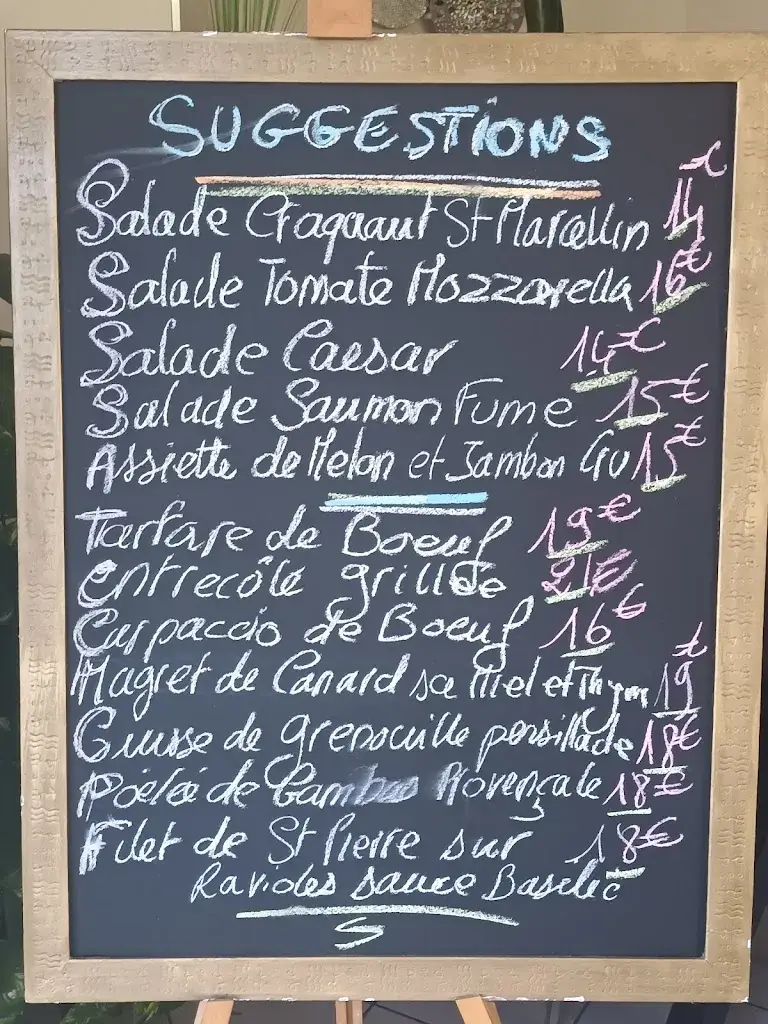 SUGGESTIONS
Salade Craquant St Marcellin 14€
Salade Tomate Mozzarella 16€
Salade Caesar 14€
Salade Saumon Fume 15€
Assiette de Melon et Jambon Cru 15€
Tartare de Boeuf 19€
entrecôte grillée 21€
Carpaccio de Boeuf 16€
Magret de Canard sce Miel et Thym 19€
Cuisse de grenouille persillade 18€
Poêlée de Gambas Provençale 18€
Filet de St Pierre sur 18€
Ravioles sauce Basilic